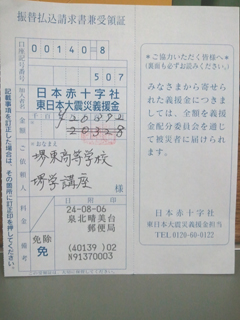 振替払込請求書兼受領証
口座記号番号
00140=8
507
加入者名
日本赤十字社
東日本大震災義援金
金額
20328
ご依頼人
おなまえ
堺東高等学校
堺学講座
様
料金
備考
日附印
24-08-06
泉北晴美台
郵便局
免除
免
(40139)02
N91370003
記載事項を訂正した場合は、その箇所に訂正印を押してください。
<ご協力いただく皆様へ>
(裏面も必ずお読みください。)
みなさまから寄せられた義援金につきましては、全額を義援金配分委員会を通じて被災者に届けられます。
日本赤十字社
東日本大震災義援金担当
TEL 0120-60-0122